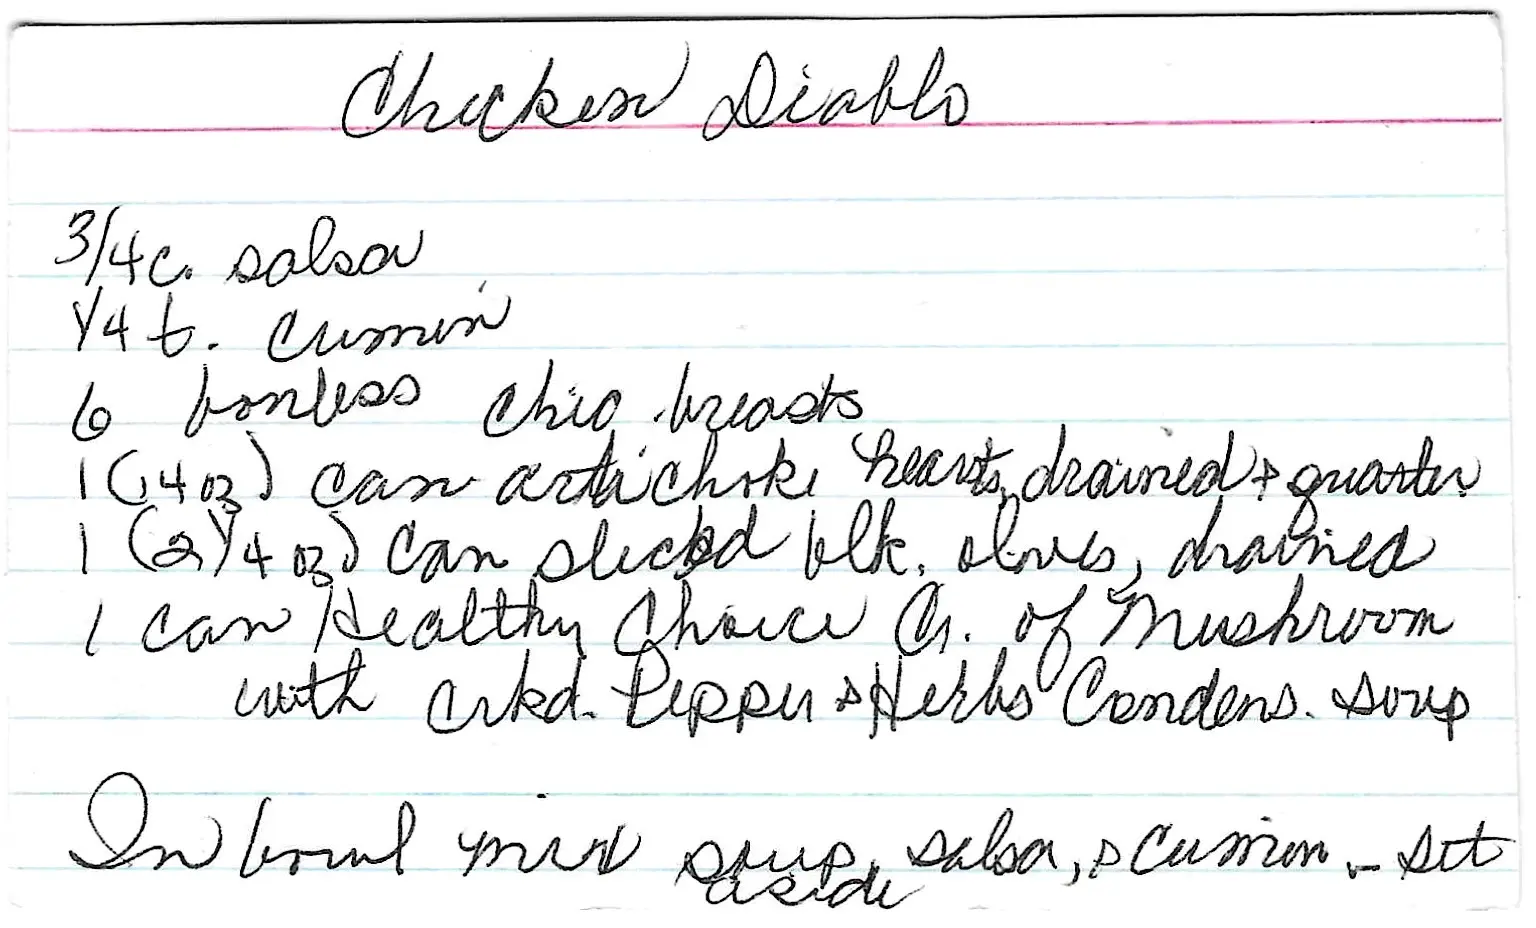 Chicken Diablo
3/4 c. salsa
1/4 t. cumin
6 bonless chic breasts
1 (14 oz) can artichoke hearts, drained & quarter
1 (2 1/4 oz) can sliced blk. olives, drained
1 can Healthy Choice Cr. of Mushroom
with crkd. Pepper & Herbs Condens. soup
In bowl mix soup, salsa, & cumin - set
aside